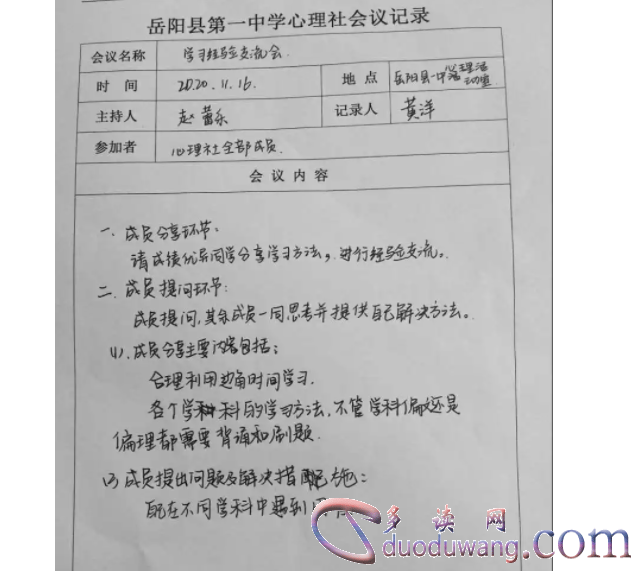 岳阳县第一中学心理社会议记录
会议名称 学习经验交流会
时 间 2020.11.16 地 点 岳阳县一中心理活动室
主持人 赵蕾乐 记录人 黄洋
参加者 心理社全部成员.
会 议 内 容
一、成员分享环节:
请成绩优异同学分享学习方法,进行经验交流。
二、成员提问环节:
成员提问,其余成员一同思考并提供自己解决方法。
(1).成员分享主要内容包括:
合理利用边角时间学习.
各个学科的学习方法,不管学科偏文还是
偏理都需要背诵和刷题.
(2)成员提出问题及解决措施:
配在不同学科中遇到
多读网
duoduwang.com